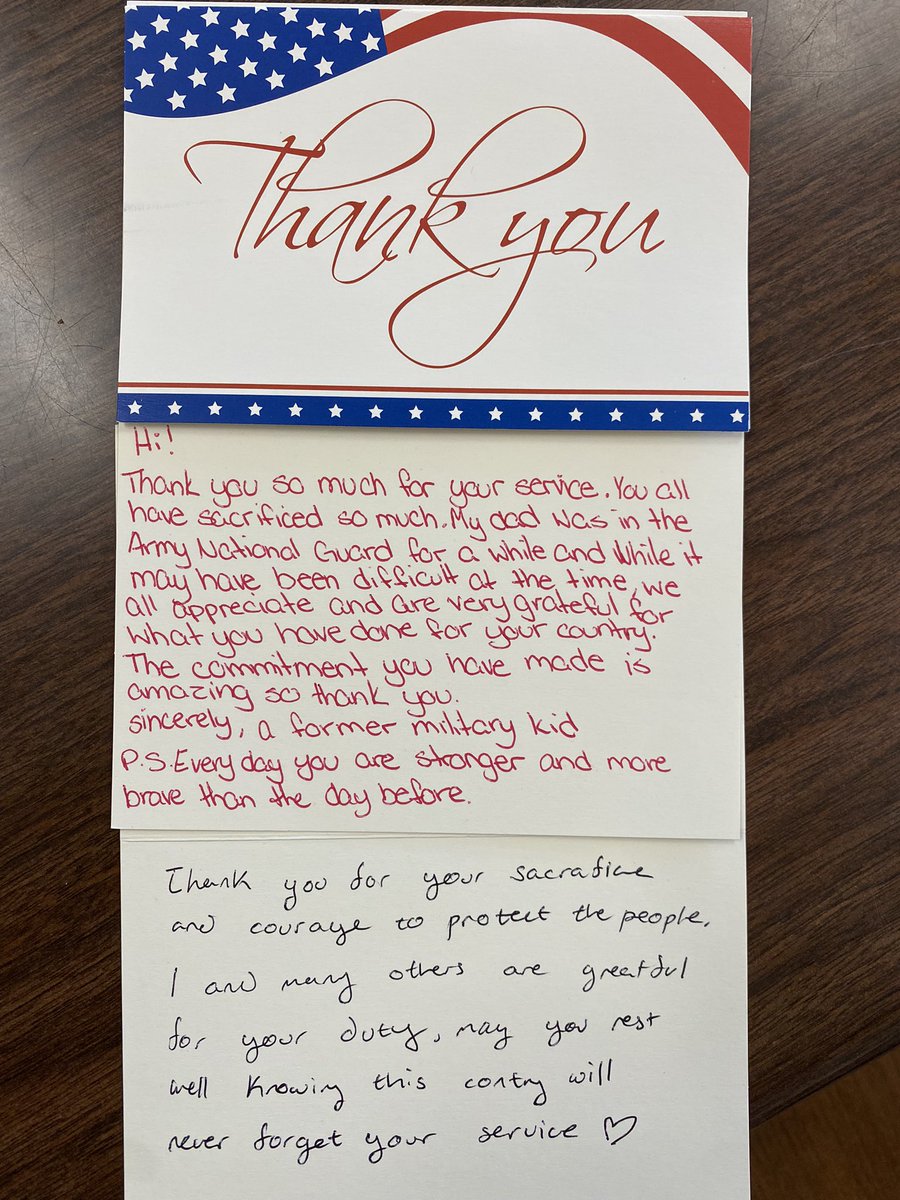 Thank you
Hi!
Thank you so much for your service. You all
have sacrificed so much. My dad was in the
Army National Guard for a while and while it
may have been difficult at the time, we
all appreciate and are very grateful for
what you have done for your country.
The commitment you have made is
amazing so thank you.
sincerely, a former military kid
P.S. Every day you are stronger and more
brave than the day before.
Thank you for your sacrafice
and courage to protect the people.
I and many others are greatful
for your duty, may you rest
well knowing this contry will
never forget your service ♡